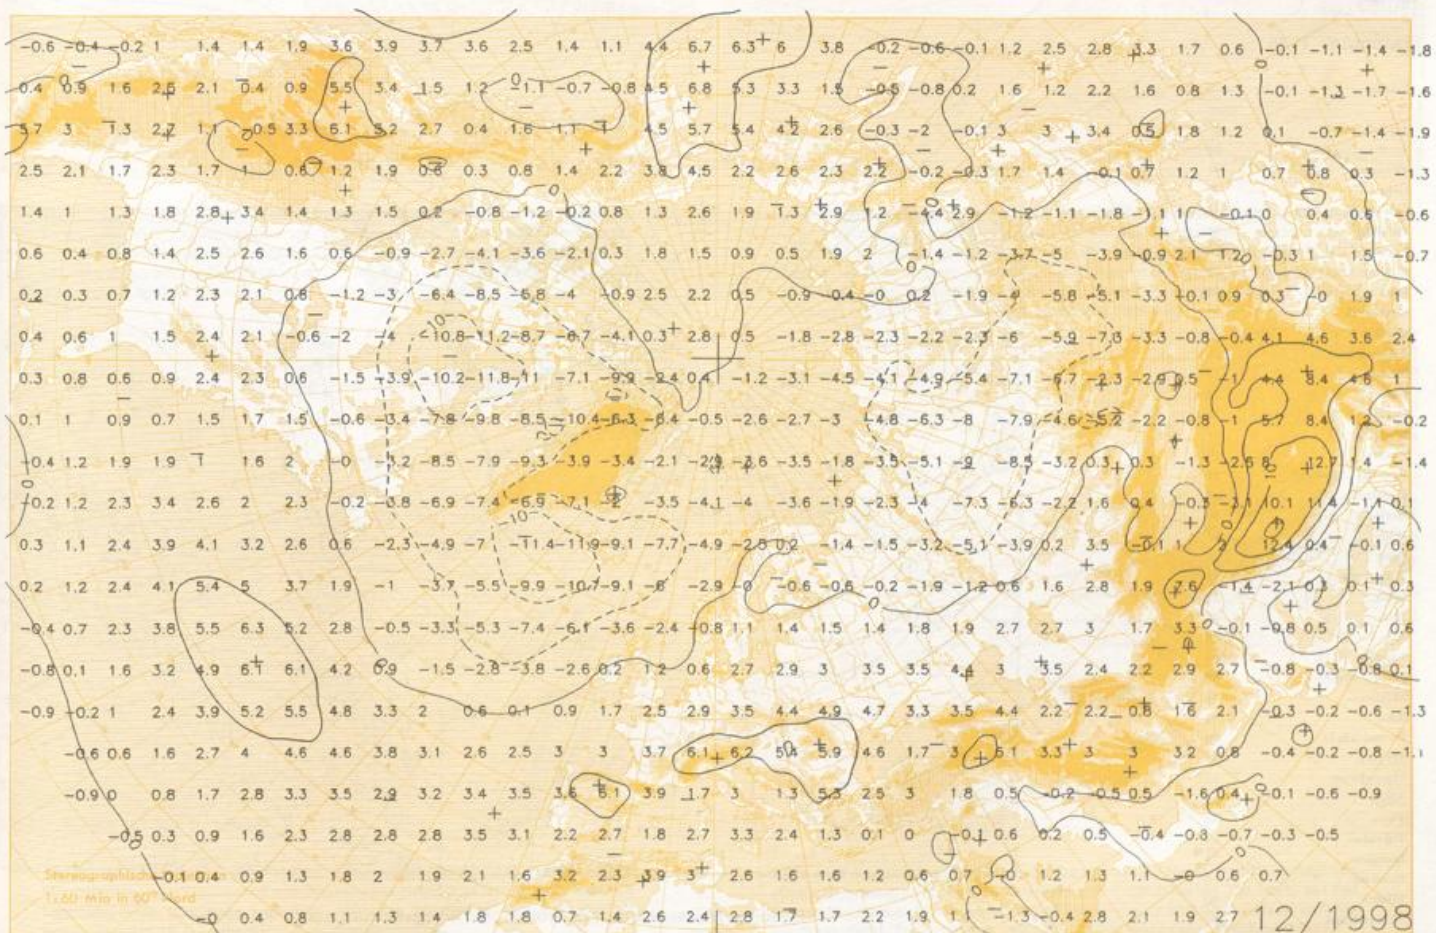 -0.6 -0.4 -0.2 1 1.4 1.4 1.9 3.6 3.9 3.7 3.6 2.5 1.4 1.1 4.4 6.7 6.3 6 3.8 -0.2 -0.6 -0.1 1.2 2.5 2.8 3.3 1.7 0.6 -0.1 -1.1 -1.4 -1.8
0.4 0.9 1.6 2.5 2.1 0.4 0.9 5.5 3.4 1.5 1.2 -1.1 -0.7 -0.8 4.5 6.8 5.3 3.3 1.5 -0.5 -0.8 0.2 1.6 1.2 2.2 1.6 0.8 1.3 -0.1 -1.3 -1.7 -1.6
5.7 3 1.3 2.7 1.1 -0.5 3.3 6.1 5.2 2.7 0.4 1.6 1.1 1 4.5 5.7 5.4 4.2 2.6 -0.3 -2 -0.1 3 3 3.4 0.5 1.8 1.2 0.1 -0.7 -1.4 -1.9
2.5 2.1 1.7 2.3 1.7 1 0.6 1.2 1.9 0.6 0.3 0.8 1.4 2.2 3.8 4.5 2.2 2.6 2.3 2.2 -0.2 -0.3 1.7 1.4 -0.1 0.7 1.2 1 0.7 0.8 0.3 -1.3
1.4 1 1.3 1.8 2.8 3.4 1.4 1.3 1.5 0.2 -0.8 -1.2 -0.2 0.8 1.3 2.6 1.9 1.3 2.9 1.2 -4.4 2.9 -1.2 -1.1 -1.8 -1.1 1 -0.1 0 0.4 0.6 -0.6
0.6 0.4 0.8 1.4 2.5 2.6 1.6 0.6 -0.9 -2.7 -4.1 -3.6 -2.1 0.3 1.8 1.5 0.9 0.5 1.9 2 -1.4 -1.2 -3.7 -5 -3.9 -0.9 2.1 1.2 -0.3 1 1.5 -0.7
0.2 0.3 0.7 1.2 2.3 2.1 0.8 -1.2 -3 -6.4 -8.5 -6.8 -4 -0.9 2.5 2.2 0.5 -0.9 -0.4 -0 0.2 -1.9 -4 -5.8 -5.1 -3.3 -0.1 0.9 0.3 -0 1.9 1
0.4 0.6 1 1.5 2.4 2.1 -0.6 -2 -4 -10.8 -11.2 -8.7 -6.7 -4.1 0.3 2.8 0.5 -1.8 -2.8 -2.3 -2.2 -2.3 -6 -5.9 -7.3 -3.3 -0.8 -0.4 4.1 4.6 3.6 2.4
0.3 0.8 0.6 0.9 2.4 2.3 0.6 -1.5 -3.9 -10.2 -11.8 -11 -7.1 -9.9 -2.4 0.4 -1.2 -3.1 -4.5 -4.1 -4.9 -5.4 -7.1 -6.7 -2.3 -2.9 0.5 -1 4.4 8.4 4.6 1
0.1 1 0.9 0.7 1.5 1.7 1.5 -0.6 -3.4 -7.8 -9.8 -8.5 -10.4 -6.3 -6.4 -0.5 -2.6 -2.7 -3 -4.8 -6.3 -8 -7.9 -4.6 -5.2 -2.2 -0.8 -1 5.7 8.4 1.2 -0.2
-0.4 1.2 1.9 1.9 1 1.6 2 -0 -3.2 -8.5 -7.9 -9.3 -3.9 -3.4 -2.1 -2.9 -3.6 -3.5 -1.8 -3.5 -5.1 -9 -8.5 -3.2 0.3 0.3 -1.3 -2.5 8 12.7 1.4 -1.4
-0.2 1.2 2.3 3.4 2.6 2 2.3 -0.2 -3.8 -6.9 -7.4 -6.9 -7.1 -8 -3.5 -4.1 -4 -3.6 -1.9 -2.3 -4 -7.3 -6.3 -2.2 1.6 0.4 -0.3 -3.1 10.1 11.4 -1.1 0.1
0.3 1.1 2.4 3.9 4.1 3.2 2.6 0.6 -2.3 -4.9 -7 -11.4 -11.9 -9.1 -7.7 -4.9 -2.5 0.2 -1.4 -1.5 -3.2 -5.1 -3.9 0.2 3.5 -0.1 1 12.4 0.4 -0.1 0.6
0.2 1.2 2.4 4.1 5.4 5 3.7 1.9 -1 -3.7 -5.5 -9.9 -10.7 -9.1 -6 -2.9 -0 -0.6 -0.6 -0.2 -1.9 -1.2 0.6 1.6 2.8 1.9 7.6 -1.4 -2.1 0.3 0.1 0.3
-0.4 0.7 2.3 3.8 5.5 6.3 5.2 2.8 -0.5 -3.3 -5.3 -7.4 -6.1 -3.6 -2.4 -0.8 1.1 1.4 1.5 1.4 1.8 1.9 2.7 2.7 3 1.7 3.3 -0.1 -0.8 0.5 0.1 0.6
-0.8 0.1 1.6 3.2 4.9 6.1 6.1 4.2 0.9 -1.5 -2.8 -3.8 -2.6 0.2 1.2 0.6 2.7 2.9 3 3.5 3.5 4.4 3 3.5 2.4 2.2 2.9 2.7 -0.8 -0.3 -0.8 0.1
-0.9 -0.2 1 2.4 3.9 5.2 5.5 4.8 3.3 2 0.6 0.1 0.9 1.7 2.5 2.9 3.5 4.4 4.9 4.7 3.3 3.5 4.4 2.2 2.2 0.8 1.6 2.1 -0.3 -0.2 -0.6 -1.3
-0.6 0.6 1.6 2.7 4 4.6 4.6 3.8 3.1 2.6 2.5 3 3 3.7 6.1 6.2 5.4 5.9 4.6 1.7 3 5.1 3.3 3 3 3.2 0.8 -0.4 -0.2 -0.8 -1.1
-0.9 0 0.8 1.7 2.8 3.3 3.5 2.9 3.2 3.4 3.5 3.6 6.1 3.9 1.7 3 1.3 5.3 2.5 3 1.8 0.5 -0.2 -0.5 0.5 -1.6 0.4 -0.1 -0.6 -0.9
-0.5 0.3 0.9 1.6 2.3 2.8 2.8 2.8 3.5 3.1 2.2 2.7 1.8 2.7 3.3 2.4 1.3 0.1 0 -0.1 0.6 0.2 0.5 -0.4 -0.8 -0.7 -0.3 -0.5
-0.1 0.4 0.9 1.3 1.8 2 1.9 2.1 1.6 3.2 2.3 3.9 3 2.6 1.6 1.6 1.2 0.6 0.7 -0 1.2 1.3 1.1 -0 0.6 0.7
1:60 Mio in 60° Nord
-0 0.4 0.8 1.1 1.3 1.4 1.8 1.8 0.7 1.4 2.6 2.4 2.8 1.7 1.7 2.2 1.9 1.1 -1.3 -0.4 2.8 2.1 1.9 2.7 12/1998